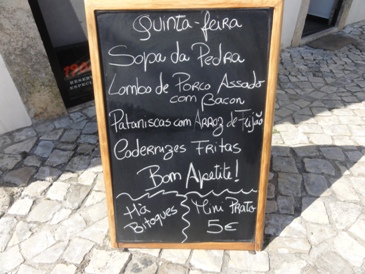 Quinta-feira
Sopa da Pedra
Lombo de Porco Assado
com Bacon
Pataniscas com Arroz de Feijão
Codernizes Fritas
Bom Apetite!
Há
Bitoques
Mini Prato
5€